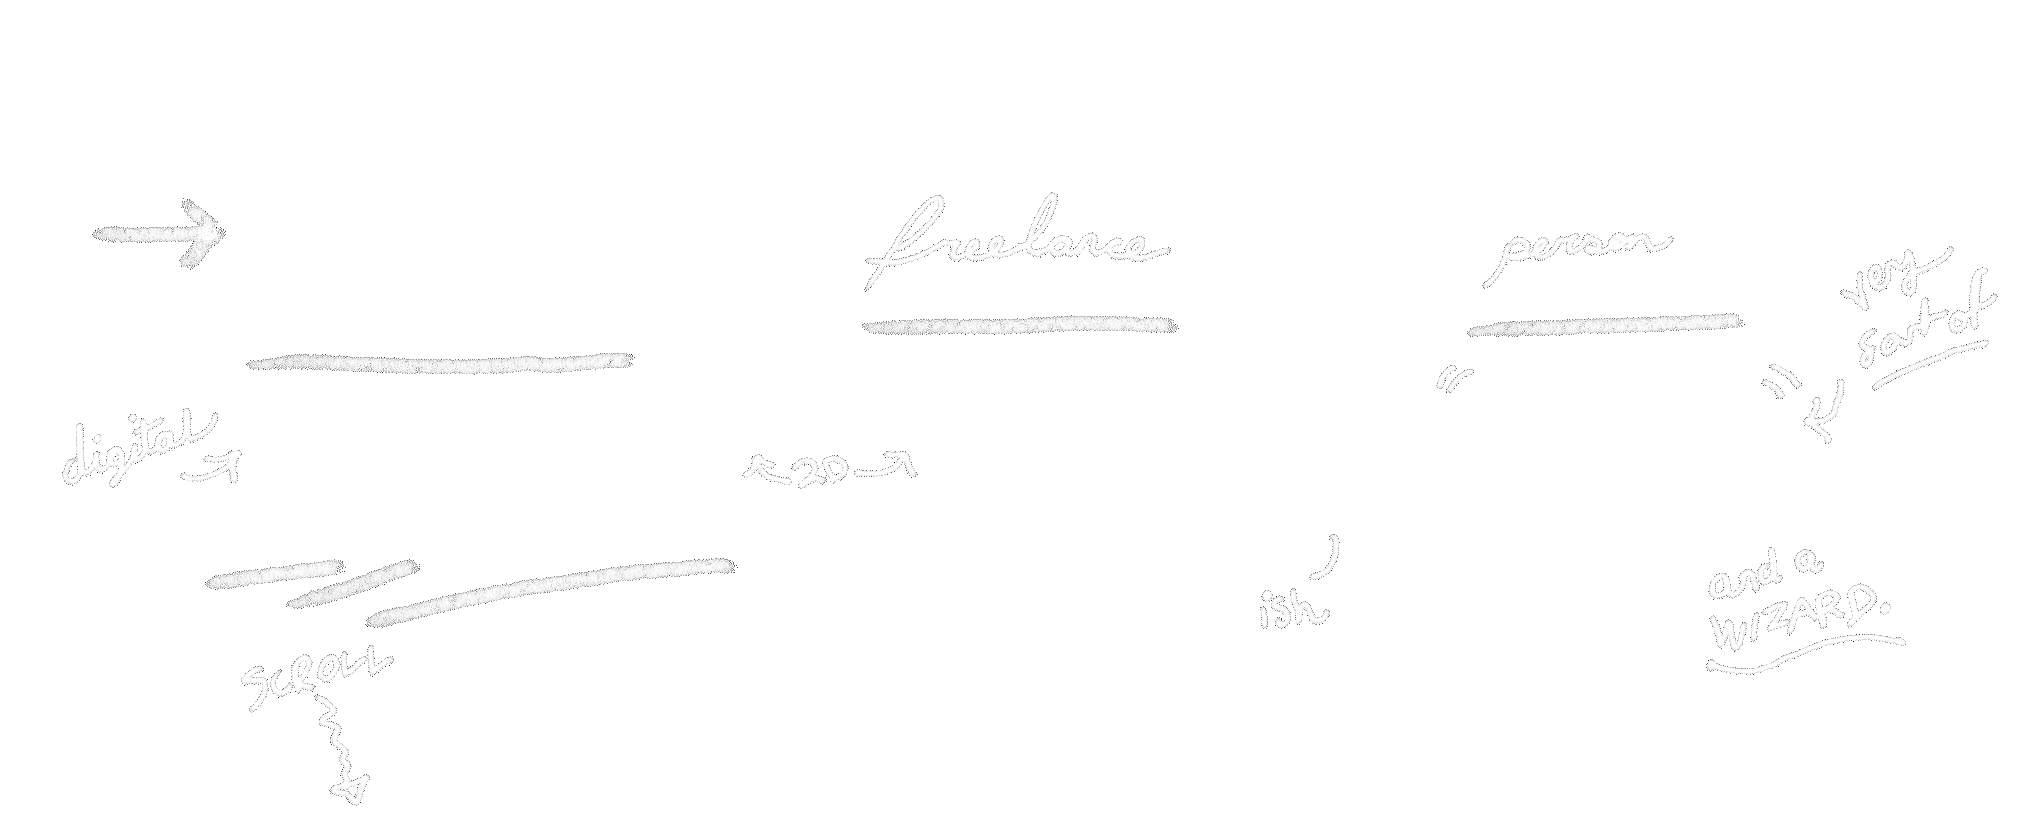 freelance
person
very
sort of
digital
2D
ish
and a
WIZARD.
SCROLL